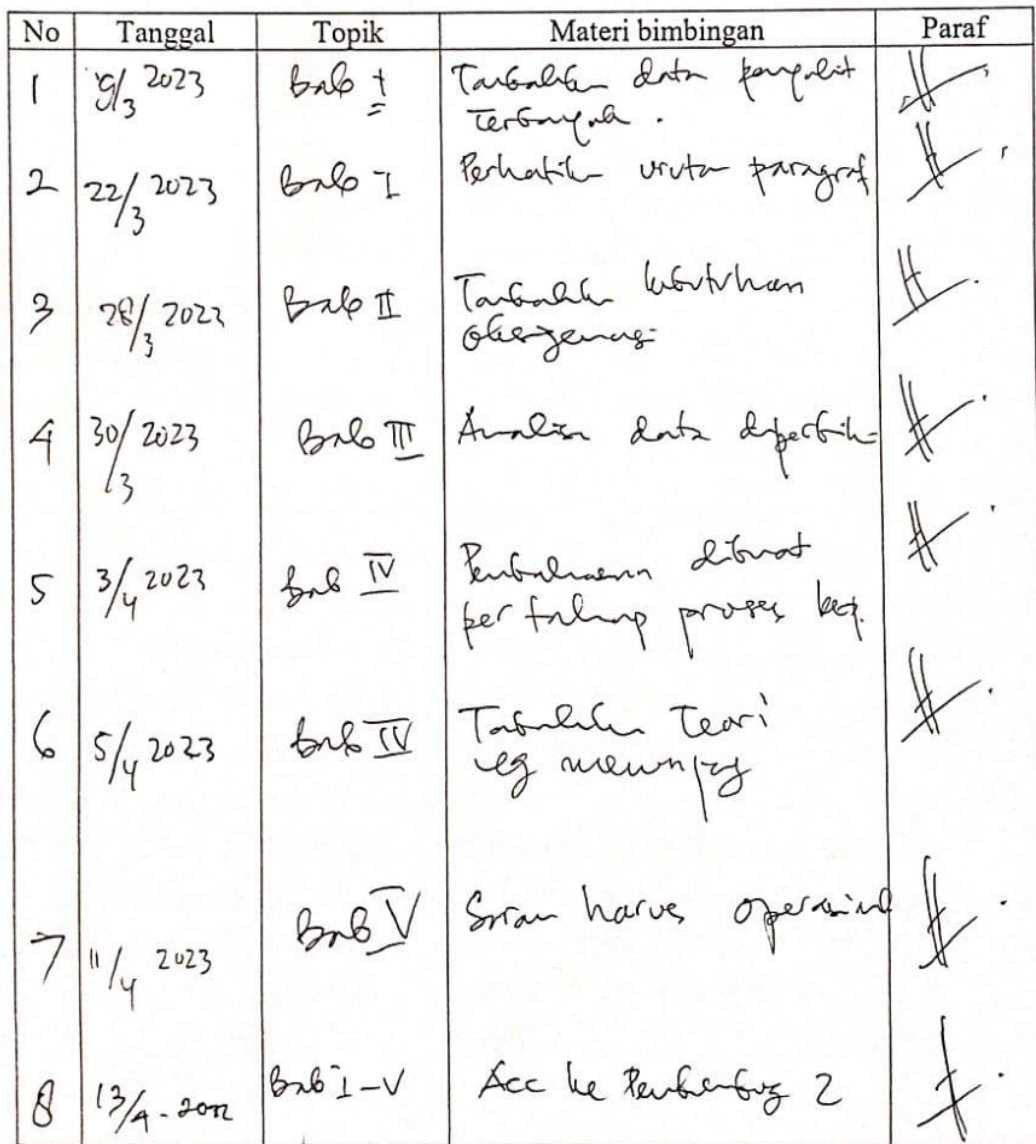 No Tanggal Topik Materi bimbingan Paraf
1 9/3 2023 Bab I Tambahkan data penyakit
terbanyak.
2 22/3 2023 Bab I Perhatikan urutan paragraf
3 28/3 2023 Bab II Tambahkan kebutuhan
oksigenasi
4 30/3 2023 Bab III Analisa data diperbaiki
5 3/4 2023 Bab IV Pembahasan dibuat
per tahap proses kep.
6 5/4 2023 Bab IV Tambahkan Teori
yg menunjang
7 11/4 2023 Bab V Saran harus operasional
8 13/4 - Bab I - V Acc ke Pembimbing 2